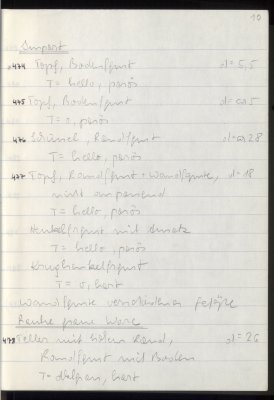 10
Import
474 Topf, Bodenfgmt d = 5,5
T = hello, porös
475 Topf, Bodenfgmt d = ca 5
T = o, porös
476 Schüssel, Randfgmt d = ca 28
T = hello, porös
477 Topf, Randfgmt + Wandfgmte, d = 18
nicht anpassend
T = hello, porös
Henkelfgmt mit Ansatz
T = hello, porös
Krughenkelfgmt
T = o, hart
Wandfgmte verschiedener Gefäße
Rauhe graue Ware
478 Teller mit hohem Rand, d = 26
Randfgmt mit Boden
T = hart